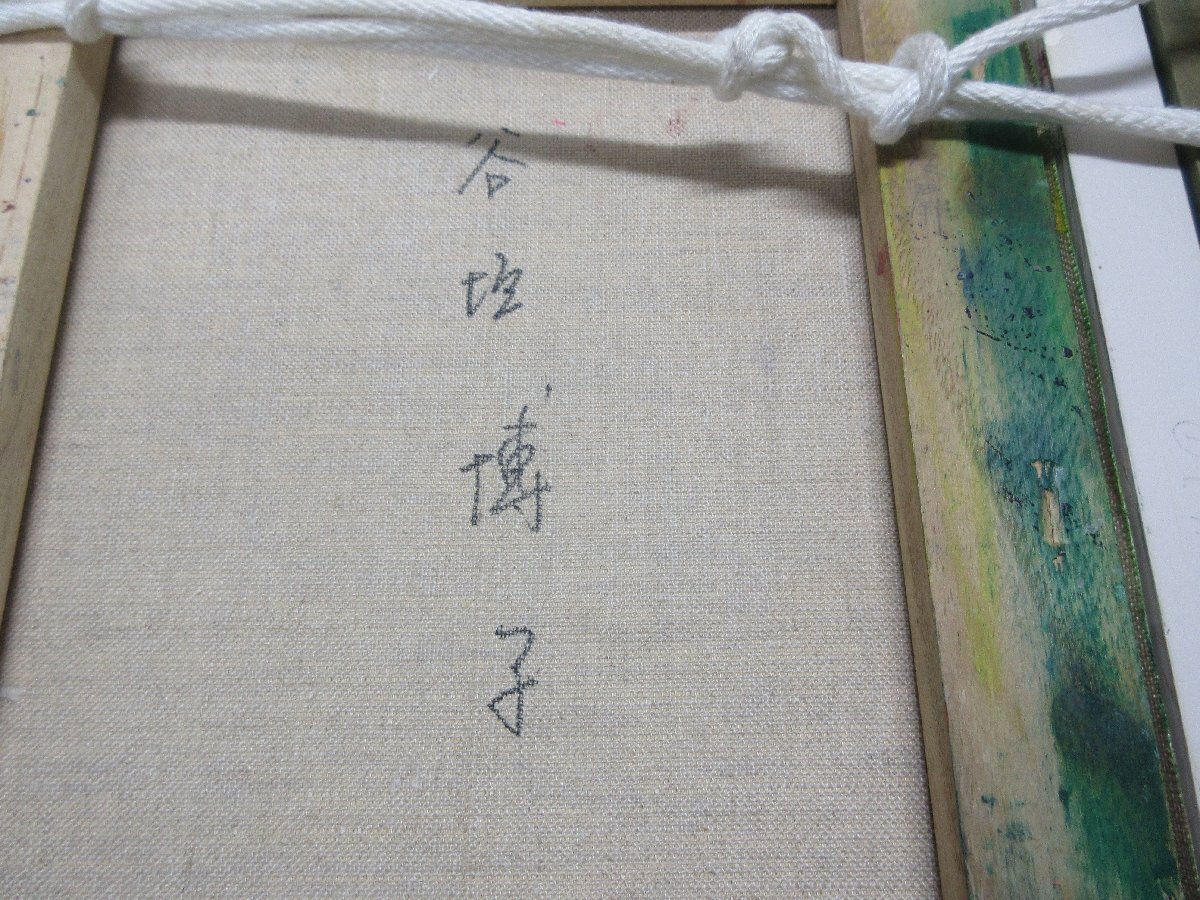 谷垣博子